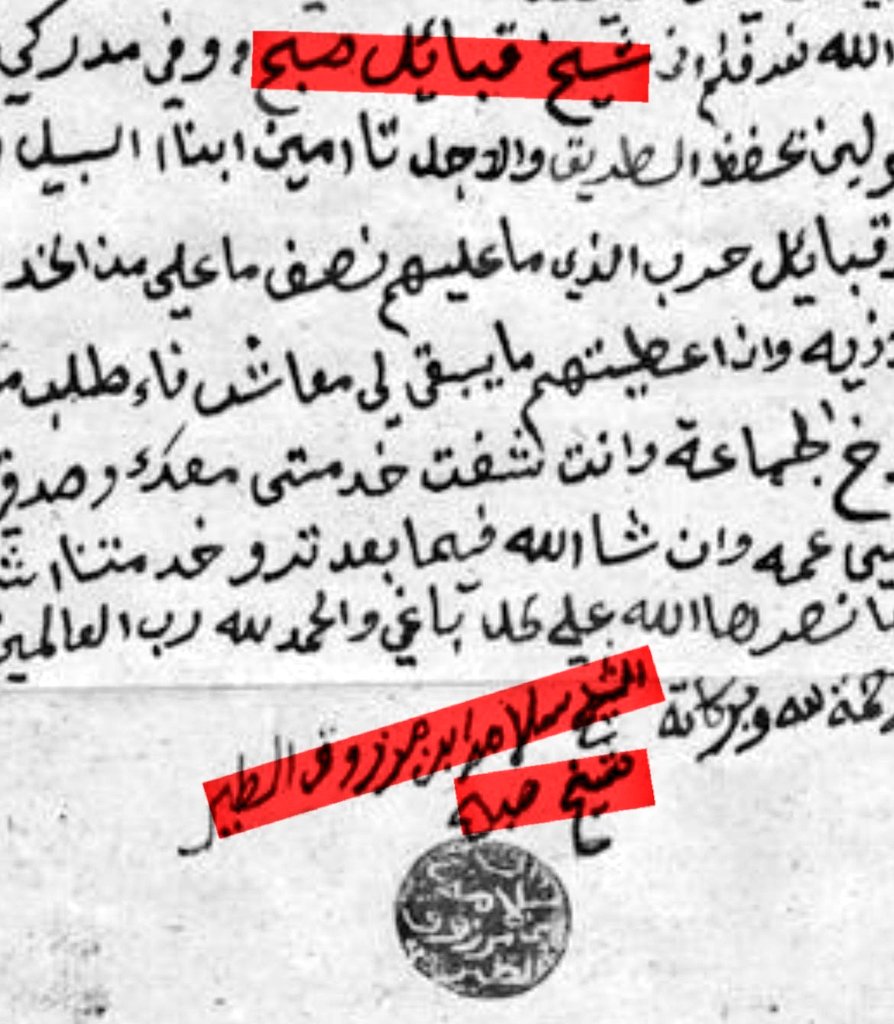 الله نعرفكم اني شيخ قبايل صبح ووفي مدركي
تحفظ الطريق والاجل تاامين ابناا السبيل
قبايل حرب الذي ما عليهم نصف ما علي من الخد
واذا عطيتهم ما يبقى لي معاش ناء طلب
الجماعة وانت شفت خدمتي معك وصدق
عمه وان شا الله فيما بعد تدو خدمتنا
نصرها الله علي كلا باغي والحمد لله رب العالمين
الله وبركاته
الشيخ سلامه ابن مرزوق الطير
شيخ صبح
سلامه
بن مرزوق
الطير